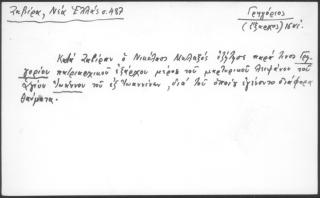 Ζαβίρα, Νέα Ἑλλάς σ. 487
Γρηγόριος
(ἔξαρχος) 16 αἰ.
Κατὰ Ζαβίραν ὁ Νικόλαος Μαλαξὸς ἐζήτησε παρά τινος Γρη-
γορίου πατριαρχικοῦ ἐξάρχου μέρος τοῦ μαρτυρικοῦ λειψάνου τοῦ
ἁγίου Ἰωάννου τοῦ ἐξ Ἰωαννίνων, διὰ τοῦ ὁποίου ἐγένοντο διάφορα
θαύματα.